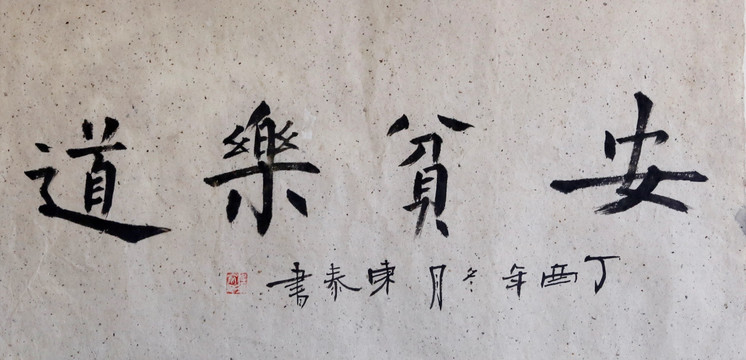 安貧樂道
丁酉年冬月東泰書